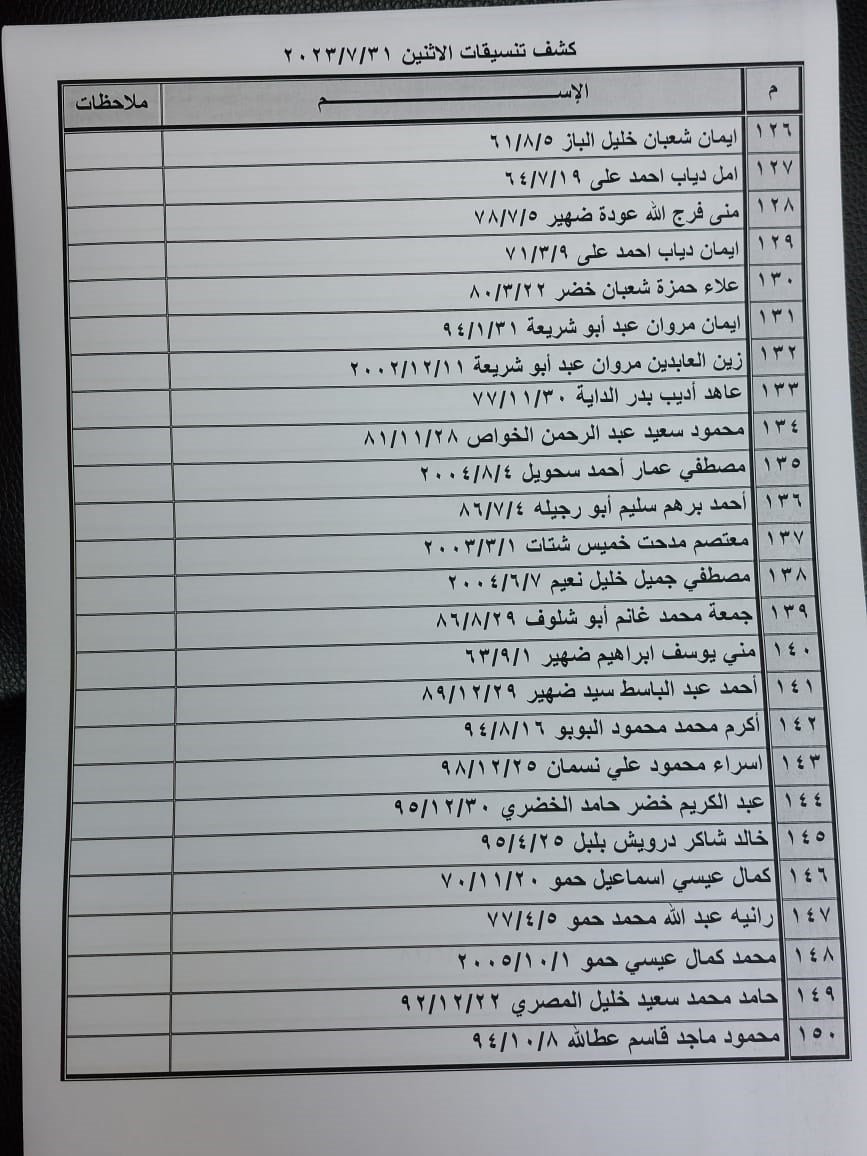 كشف تنسيقات الاثنين ٢٠٢٣/٧/٣١
م الإســـم ملاحظات
١٢٦ ايمان شعبان خليل الباز ٦١/٨/٥
١٢٧ امل دياب احمد على ٦٤/٧/١٩
١٢٨ منى فرج الله عودة ضهير ٧٨/٧/٥
١٢٩ ايمان دياب احمد على ٧١/٣/٩
١٣٠ علاء حمزة شعبان خضر ٨٠/٣/٢٢
١٣١ ايمان مروان عبد أبو شريعة ٩٤/١/٣١
١٣٢ زين العابدين مروان عبد أبو شريعة ٢٠٠٢/١٢/١١
١٣٣ عاهد أديب بدر الداية ٧٧/١١/٣٠
١٣٤ محمود سعيد عبد الرحمن الخواص ٨١/١١/٢٨
١٣٥ مصطفي عمار أحمد سحويل ٢٠٠٤/٨/٤
١٣٦ أحمد برهم سليم أبو رجيله ٨٦/٧/٤
١٣٧ معتصم مدحت خميس شتات ٢٠٠٣/٣/١
١٣٨ مصطفي جميل خليل نعيم ٢٠٠٤/٦/٧
١٣٩ جمعة محمد غانم أبو شلوف ٨٦/٨/٢٩
١٤٠ مني يوسف ابراهيم ضهير ٦٣/٩/١
١٤١ أحمد عبد الباسط سيد ضهير ٨٩/١٢/٢٩
١٤٢ أكرم محمد محمود البوبو ٩٤/٨/١٦
١٤٣ اسراء محمود علي نسمان ٩٨/١٢/٢٥
١٤٤ عبد الكريم خضر حامد الخضري ٩٥/١٢/٣٠
١٤٥ خالد شاكر درويش بلبل ٩٥/٤/٢٥
١٤٦ كمال عيسي اسماعيل حمو ٧٠/١١/٢٠
١٤٧ رانيه عبد الله محمد حمو ٧٧/٤/٥
١٤٨ محمد كمال عيسي حمو ٢٠٠٥/١٠/١
١٤٩ حامد محمد سعيد خليل المصري ٩٢/١٢/٢٢
١٥٠ محمود ماجد قاسم عطالله ٩٤/١٠/٨